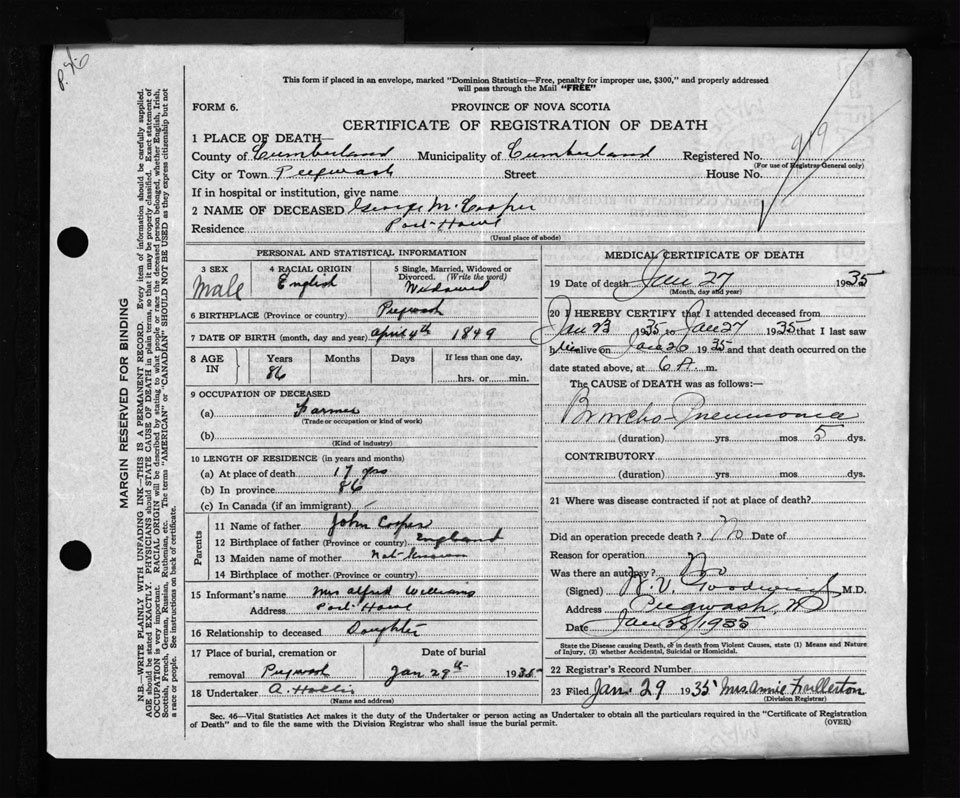 P. 46
This form if placed in an envelope, marked "Dominion Statistics—Free, penalty for improper use, $300," and properly addressed
will pass through the Mail "FREE"
FORM 6.
PROVINCE OF NOVA SCOTIA
CERTIFICATE OF REGISTRATION OF DEATH
1 PLACE OF DEATH—
County of Cumberland Municipality of Cumberland Registered No. 219
(For use of Registrar-General only)
City or Town Pugwash Street House No.
If in hospital or institution, give name
2 NAME OF DECEASED George M. Cooper
Residence Port Howe
(Usual place of abode)
PERSONAL AND STATISTICAL INFORMATION
3 SEX
Male
4 RACIAL ORIGIN
English
5 Single, Married, Widowed or
Divorced. (Write the word)
Widowed
6 BIRTHPLACE (Province or country) Pugwash
7 DATE OF BIRTH (month, day and year) April 4th 1849
8 AGE
IN
Years
86
Months
Days
If less than one day,
hrs. or min.
9 OCCUPATION OF DECEASED
(a) Farmer
(Trade or occupation or kind of work)
(b)
(Kind of industry)
10 LENGTH OF RESIDENCE (in years and months)
(a) At place of death 17 yrs
(b) In province 86
(c) In Canada (if an immigrant)
Parents
11 Name of father John Cooper
12 Birthplace of father (Province or country) England
13 Maiden name of mother Not Known
14 Birthplace of mother (Province or country)
15 Informant's name Mrs Alfred Williams
Address Port Howe
16 Relationship to deceased Daughter
17 Place of burial, cremation or
removal Pugwash
Date of burial
Jan 29th 1935
18 Undertaker A. Hollis
(Name and address)
MEDICAL CERTIFICATE OF DEATH
19 Date of death Jan 27 1935
(Month, day and year)
20 I HEREBY CERTIFY that I attended deceased from
Jan 23 1935 to Jan 27 1935 that I last saw
him alive on Jan 26 1935 and that death occurred on the
date stated above, at 6 A. m.
The CAUSE OF DEATH was as follows:—
Broncho-Pneumonia
(duration) yrs mos 5 dys.
CONTRIBUTORY
(duration) yrs mos dys.
21 Where was disease contracted if not at place of death?
Did an operation precede death? No Date of
Reason for operation
Was there an autopsy? No
(Signed) M.D.
Address Pugwash, NS
Date Jan 28/1935
State the Disease causing Death, or in death from Violent Causes, state (1) Means and Nature
of Injury, (2) whether Accidental, Suicidal or Homicidal.
22 Registrar's Record Number
23 Filed Jan. 29 1935 Mrs. Annie Fullerton
(Division Registrar)
Sec. 46—Vital Statistics Act makes it the duty of the Undertaker or person acting as Undertaker to obtain all the particulars required in the "Certificate of Registration
of Death" and to file the same with the Division Registrar who shall issue the burial permit.
(OVER)
MARGIN RESERVED FOR BINDING
N.B.—WRITE PLAINLY WITH UNFADING INK—THIS IS A PERMANENT RECORD. Every item of information should be carefully supplied.
AGE should be stated EXACTLY. PHYSICIANS should STATE CAUSE OF DEATH in plain terms, so that it may be properly classified. Exact statement of
OCCUPATION is very important. RACIAL ORIGIN will be described by stating to what people or race the deceased person belonged, whether English, Irish,
Scottish, French, German, Russian, Ruthenian, etc. The terms "AMERICAN" or "CANADIAN" SHOULD NOT BE USED as they express citizenship but not
a race or people. See instructions on back of certificate.